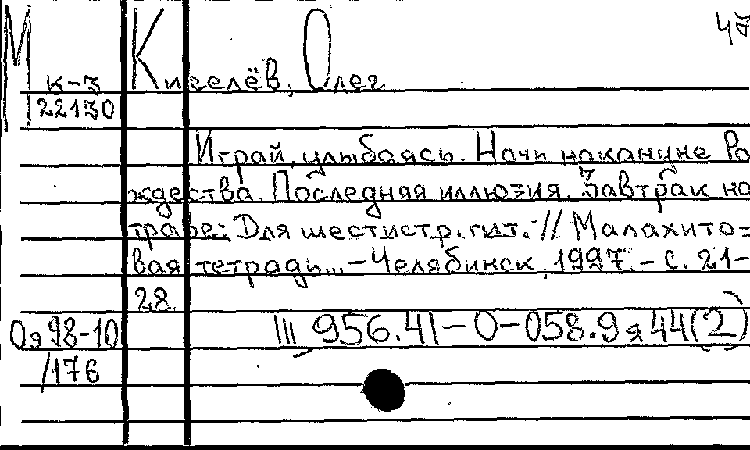 47
М Киселёв, Олег
к-3
22130
Играй, улыбаясь. Ночь накануне Ро-
ждества. Последняя иллюзия. Завтрак на
траве: Для шестистр. гит. // Малахито-
вая тетрадь... - Челябинск, 1997. - С. 21-
28.
Оя98-10 III 956.41-О-058.9я44(2)
/176